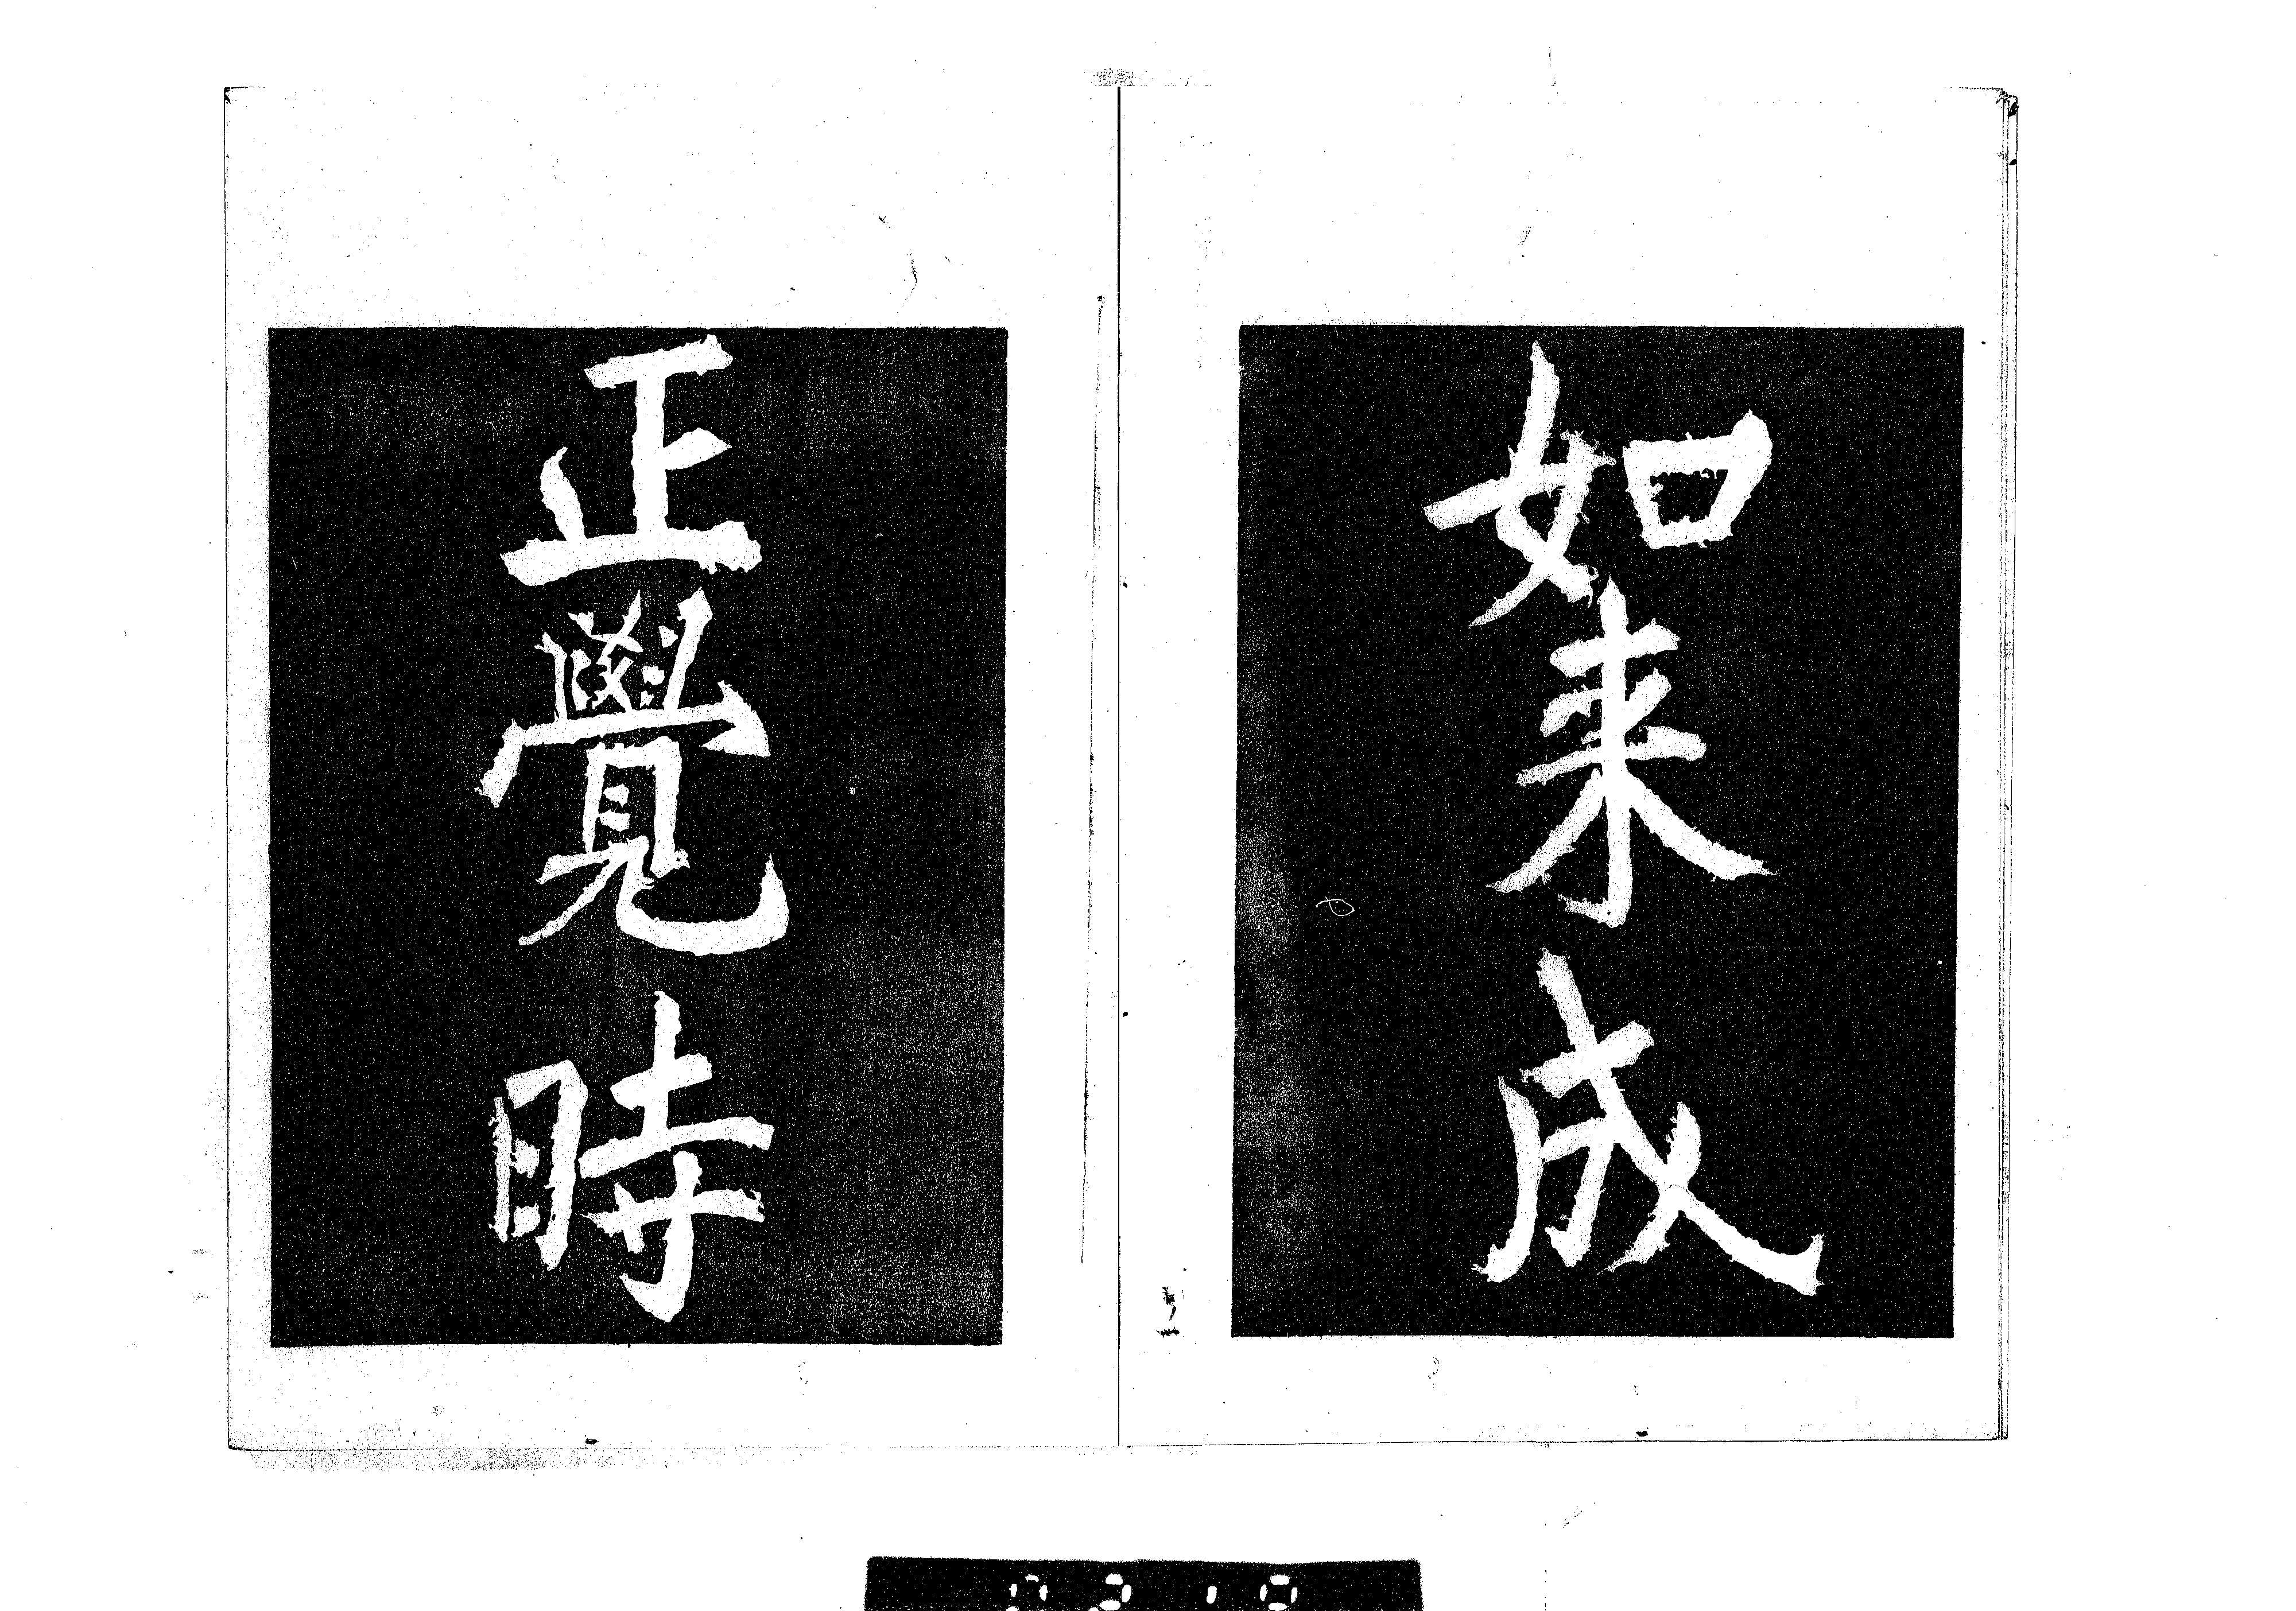 如来成
正覺時